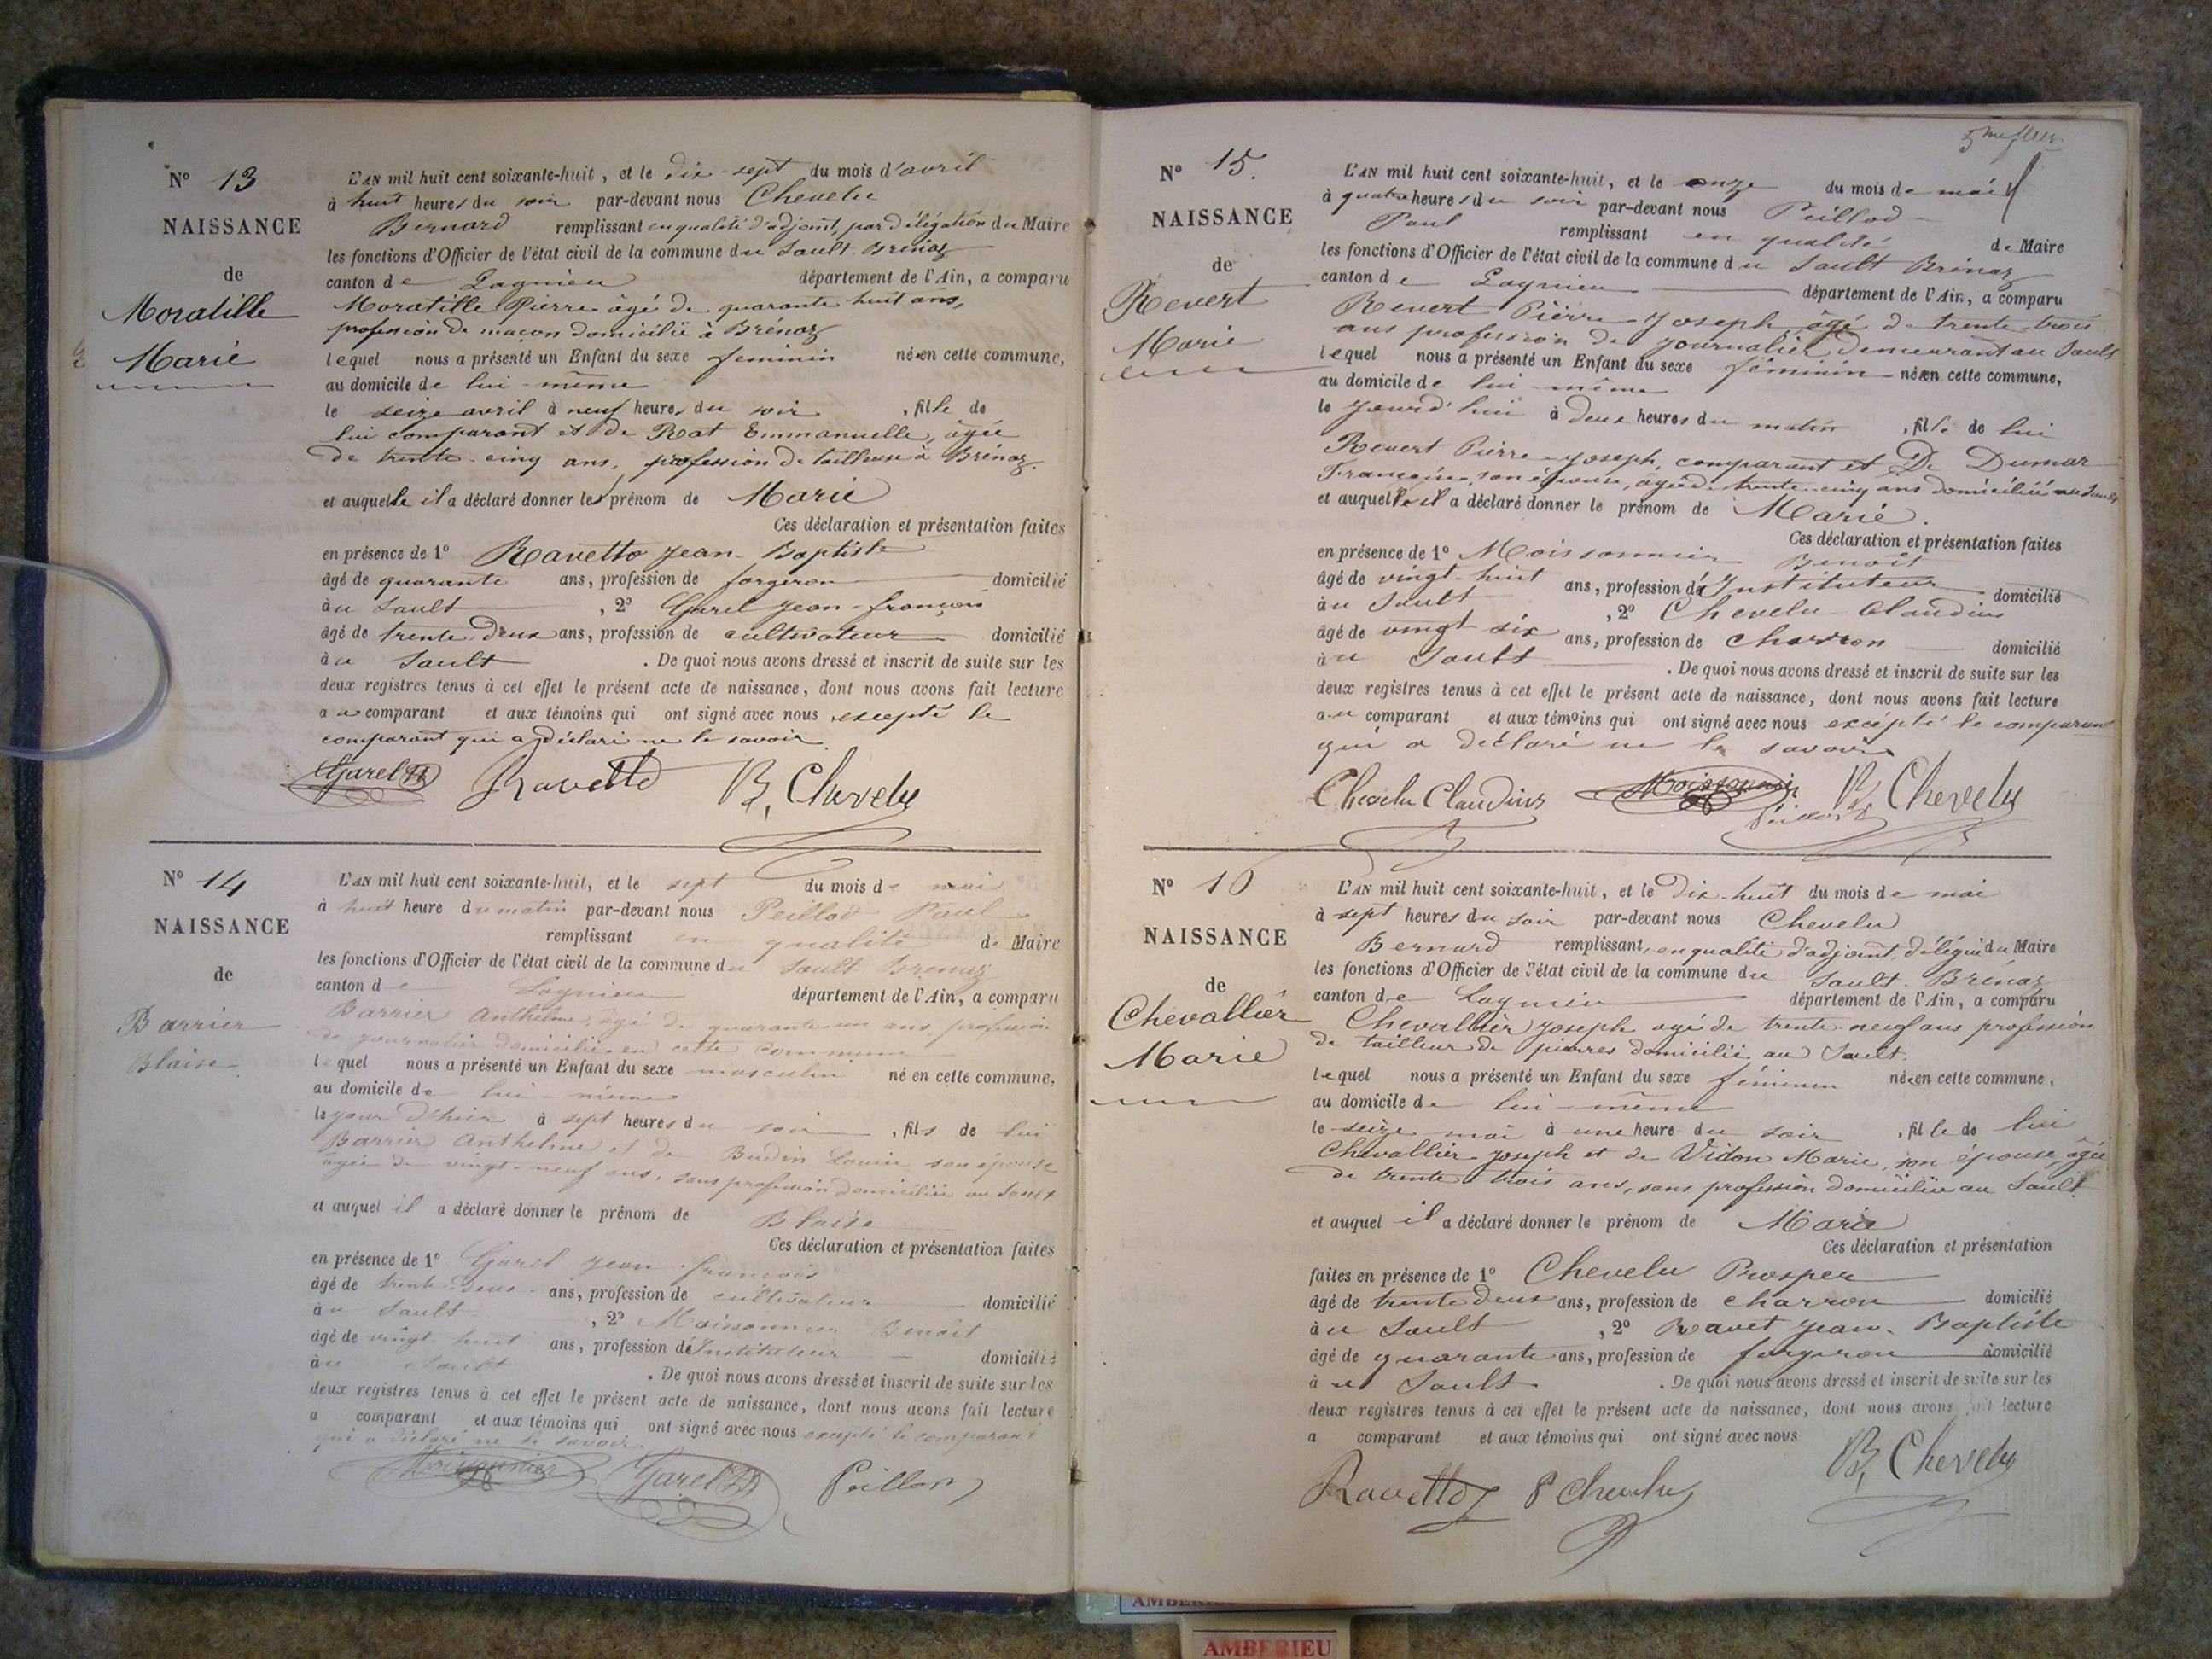 N° 13
NAISSANCE
de
Moratille
Marie
L'AN mil huit cent soixante-huit, et le dix-sept du mois d'avril
à huit heures du soir par-devant nous Chevelu
Bernard remplissant en qualité d'adjoint, par délégation du Maire
les fonctions d'Officier de l'état civil de la commune du Sault-Brénaz
canton de Lagnieu département de l'Ain, a comparu
Moratille Pierre âgé de quarante huit ans,
profession de maçon domicilié à Brénaz
lequel nous a présenté un Enfant du sexe féminin née en cette commune,
au domicile de lui-même
le seize avril à neuf heures du soir , fille de
lui comparant et de Rat Emmanuelle, âgée
de trente-cinq ans, profession de tailleuse à Brénaz.
et auquelle il a déclaré donner le prénom de Marie
Ces déclaration et présentation faites
en présence de 1° Ravetto Jean-Baptiste
âgé de quarante ans, profession de forgeron domicilié
au Sault , 2° Garel Jean-françois
âgé de trente-deux ans, profession de cultivateur domicilié
au Sault . De quoi nous avons dressé et inscrit de suite sur les
deux registres tenus à cet effet le présent acte de naissance, dont nous avons fait lecture
au comparant et aux témoins qui ont signé avec nous excepté le
comparant qui a déclaré ne le savoir
Garel Ravetto B. Chevelu
N° 14
NAISSANCE
de
Barrier
Blaise
L'AN mil huit cent soixante-huit, et le sept du mois de mai
à huit heure du matin par-devant nous Peillod Paul
remplissant en qualité de Maire
les fonctions d'Officier de l'état civil de la commune du Sault Brénaz
canton de Lagnieu département de l'Ain, a comparu
Barrier Anthelme, âgé de quarante-un ans, profession
de journalier domicilié en cette commune
lequel nous a présenté un Enfant du sexe masculin né en cette commune,
au domicile de lui-même
le jour d'hier à sept heures du soir , fils de lui
Barrier Anthelme et de Budin Louise, son épouse
âgée de vingt-neuf ans, sans profession domiciliée au Sault
et auquel il a déclaré donner le prénom de Blaise
Ces déclaration et présentation faites
en présence de 1° Garel Jean-françois
âgé de trente-deux ans, profession de cultivateur domicilié
au Sault , 2° Moissonnier Benoit
âgé de vingt-huit ans, profession d'Instituteur domicilié
au Sault . De quoi nous avons dressé et inscrit de suite sur les
deux registres tenus à cet effet le présent acte de naissance, dont nous avons fait lecture
a comparant et aux témoins qui ont signé avec nous excepté le comparant
qui a déclaré ne le savoir.
Moissonnier Garel Peillod
5me
N° 15.
NAISSANCE
de
Revert
Marie
L'AN mil huit cent soixante-huit, et le onze du mois de mai
à quatre heures du soir par-devant nous Peillod
Paul remplissant en qualité de Maire
les fonctions d'Officier de l'état civil de la commune du Sault Brénaz
canton de Lagnieu département de l'Ain, a comparu
Revert Pierre-Joseph âgé de trente-trois
ans profession de journalier demeurant au Sault
lequel nous a présenté un Enfant du sexe féminin née en cette commune,
au domicile de lui-même
le jourd'hui à deux heures du matin , fille de lui
Revert Pierre-Joseph, comparant et De Dumar
Françoise, son épouse, âgée de trente-cinq ans domiciliée au Sault
et auquelle il a déclaré donner le prénom de Marie.
Ces déclaration et présentation faites
en présence de 1° Moissonnier Benoit
âgé de vingt-huit ans, profession d'Instituteur domicilié
au Sault , 2° Chevelu Claudius
âgé de vingt six ans, profession de charron domicilié
au Sault . De quoi nous avons dressé et inscrit de suite sur les
deux registres tenus à cet effet le présent acte de naissance, dont nous avons fait lecture
au comparant et aux témoins qui ont signé avec nous excepté le comparant
qui a déclaré ne le savoir
Chevelu Claudius Moissonnier Peillod B. Chevelu
N° 16
NAISSANCE
de
Chevallier
Marie
L'AN mil huit cent soixante-huit, et le dix-huit du mois de mai
à sept heures du soir par-devant nous Chevelu
Bernard remplissant, en qualité d'adjoint, délégué du Maire
les fonctions d'Officier de l'état civil de la commune du Sault-Brénaz
canton de Lagnieu département de l'Ain, a comparu
Chevallier Joseph âgé de trente-neuf ans profession
de tailleur de pierres domicilié au Sault.
lequel nous a présenté un Enfant du sexe féminin née en cette commune,
au domicile de lui-même
le seize mai à une heure du soir , fille de lui
Chevallier Joseph et de Vidon Marie, son épouse, âgée
de trente-trois ans, sans profession domiciliée au Sault.
et auquel il a déclaré donner le prénom de Marie
Ces déclaration et présentation
faites en présence de 1° Chevelu Prosper
âgé de trente deux ans, profession de charron domicilié
au Sault , 2° Ravet Jean-Baptiste
âgé de quarante ans, profession de forgeron domicilié
au Sault . De quoi nous avons dressé et inscrit de suite sur les
deux registres tenus à cet effet le présent acte de naissance, dont nous avons fait lecture
a comparant et aux témoins qui ont signé avec nous
Ravetto P Chevelu B. Chevelu
AMBERIEU